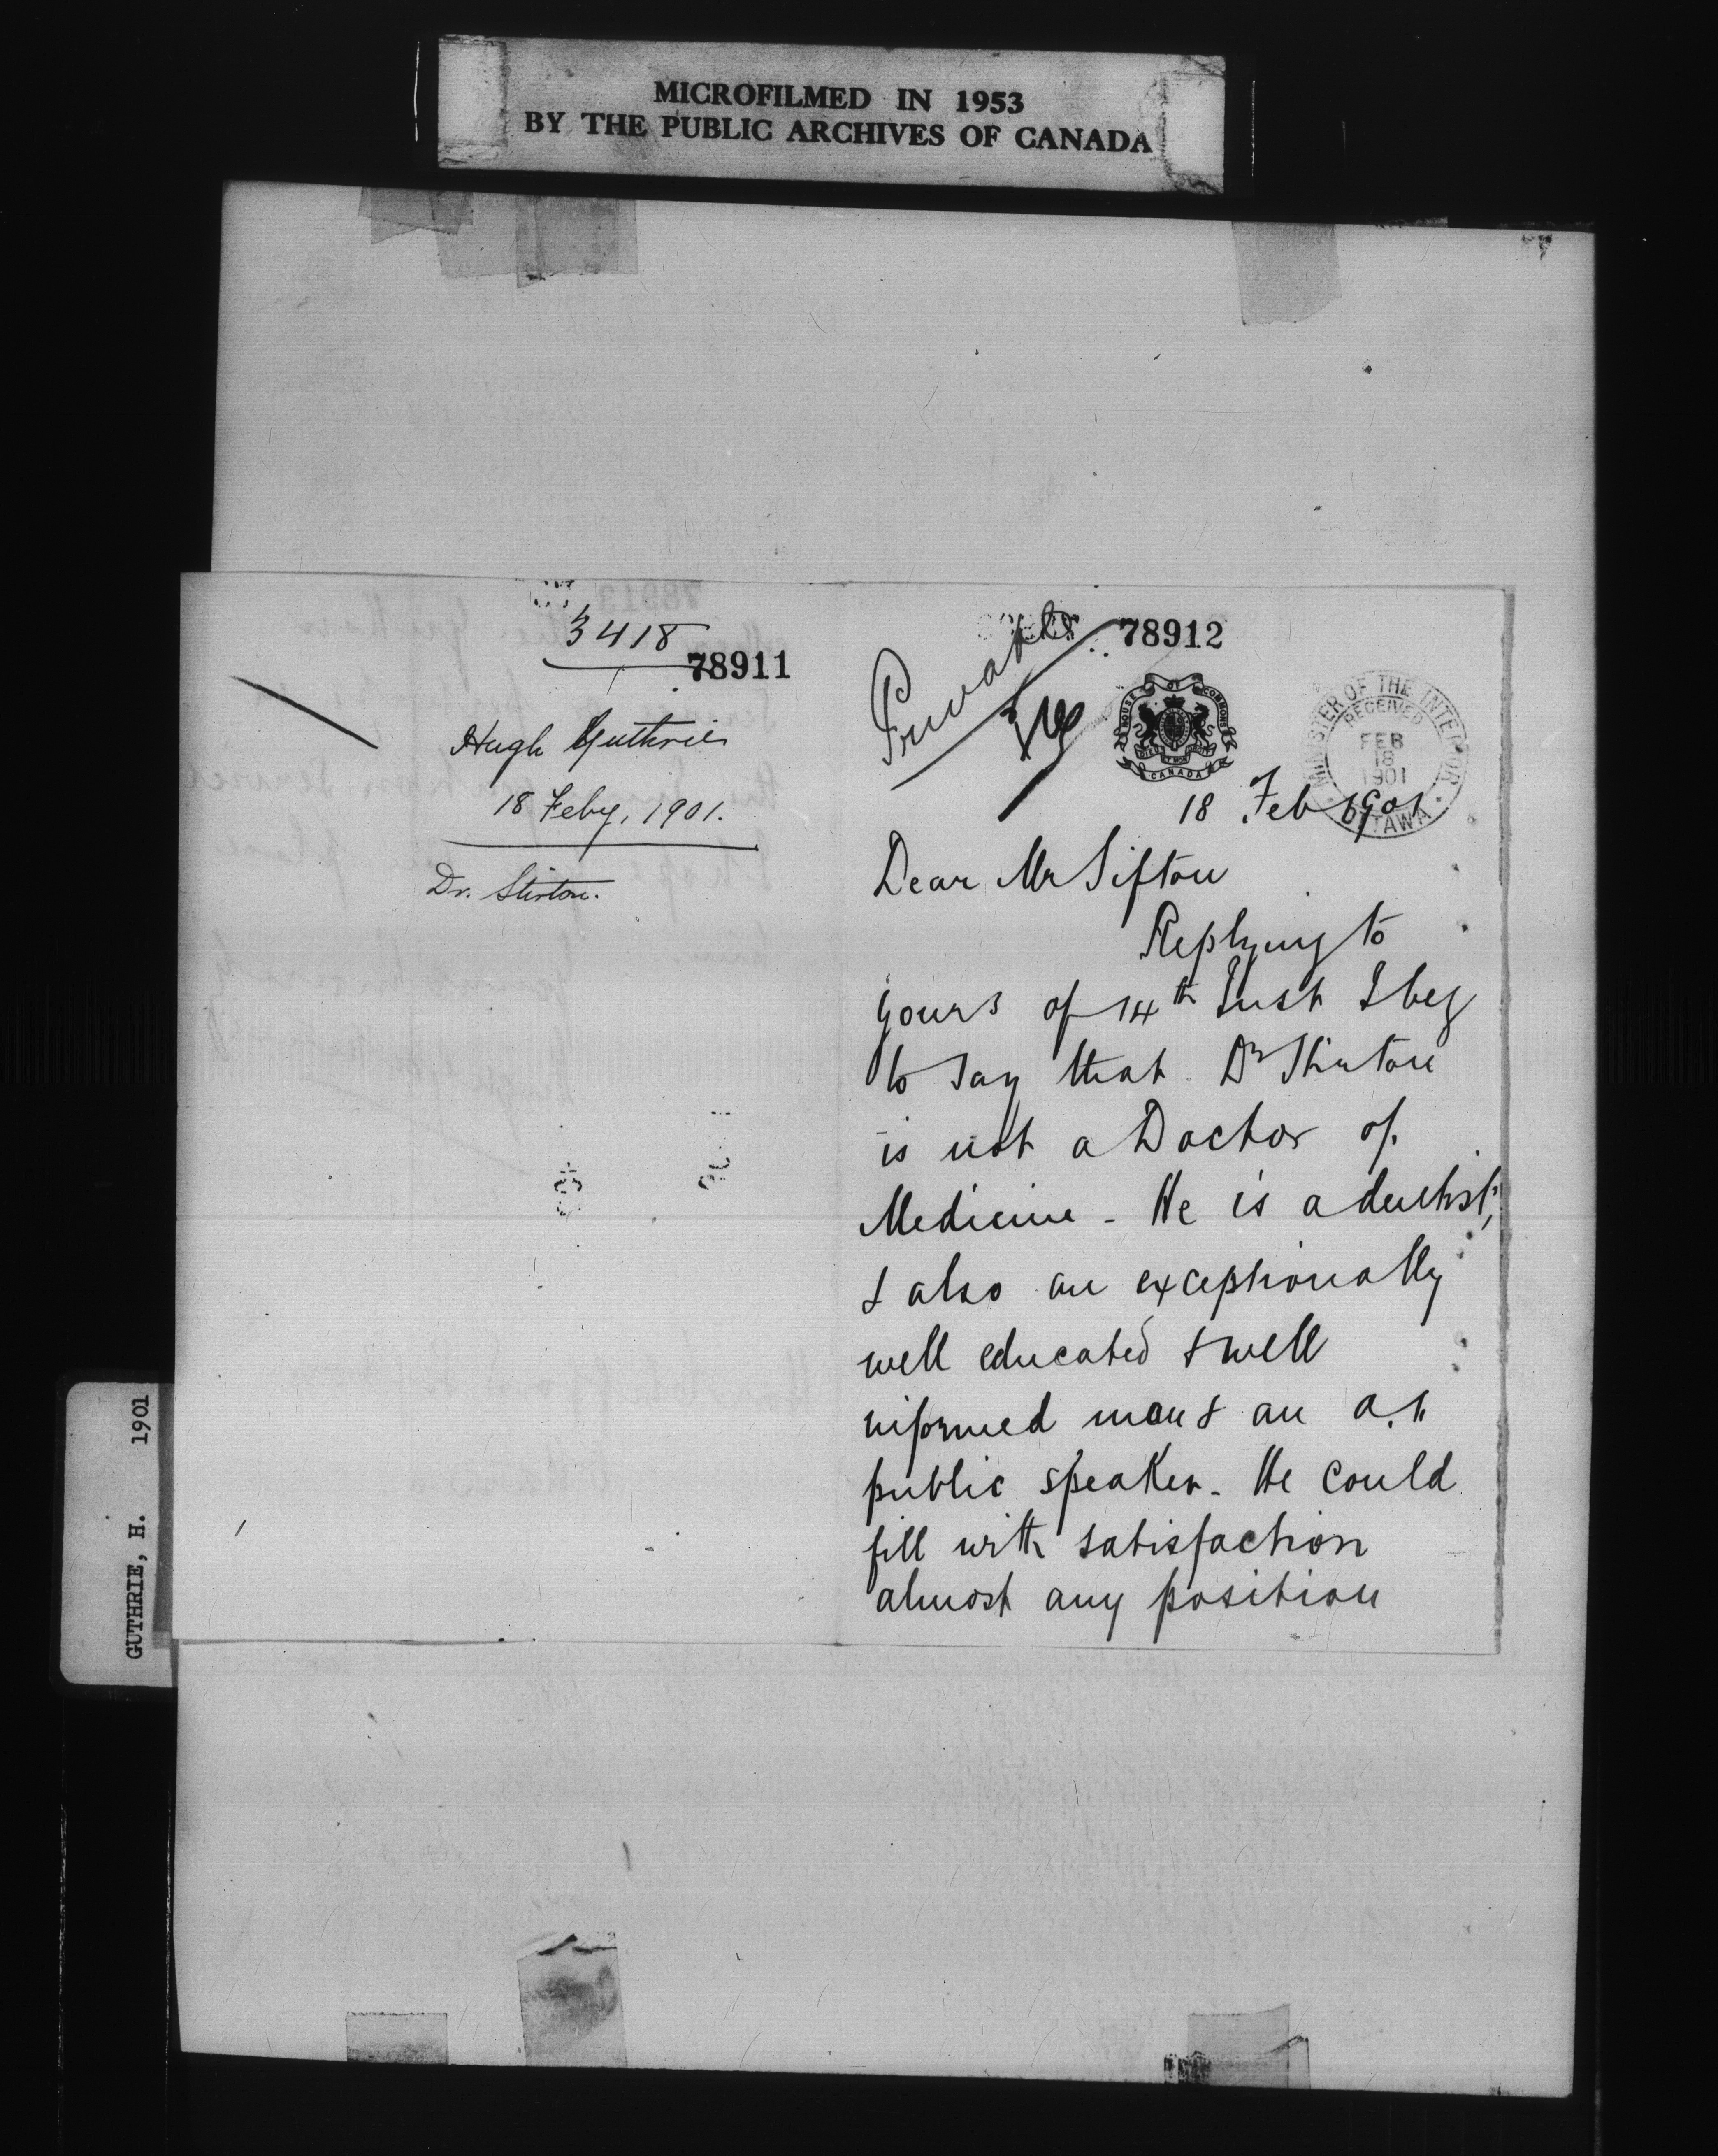 MICROFILMED IN 1953
BY THE PUBLIC ARCHIVES OF CANADA
3418
78911
Hugh Guthrie
18 Feby, 1901.
Dr. Stirton.
Private
78912
HOUSE OF COMMONS
CANADA
MINISTER OF THE INTERIOR
RECEIVED
FEB
18
1901
OTTAWA
18 Feb 1901
Dear Mr Sifton
Replying to
yours of 14th Inst I beg
to say that Dr Stirton
is not a Doctor of
Medicine - He is a dentist,
& also an exceptionally
well educated & well
informed man & an a.1.
public speaker. He could
fill with satisfaction
almost any position
GUTHRIE, H. 1901